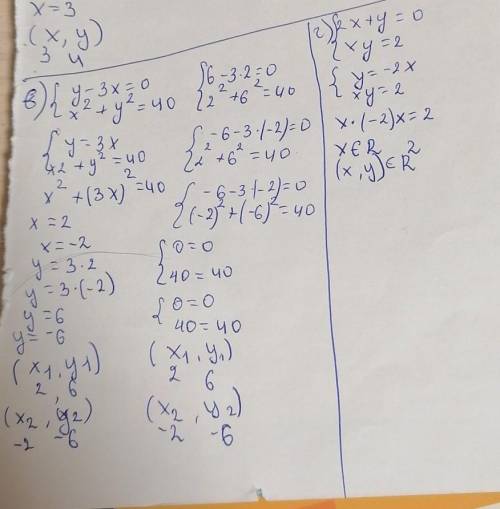 x=3
(x, y)
3 4
в) { y-3x=0
x²+y²=40
{ y=3x
x2+y²=40
x²+(3x)²=40
x=2
x=-2
y=3·2
y=3·(-2)
y=6
y=-6
(x₁, y1)
2, 6
(x₂, y₂)
-2 -6
{ 6-3·2=0
2²+6²=40
{ -6-3·(-2)=0
2²+6²=40
{ -6-3·(-2)=0
(-2)²+(-6)²=40
{ 0=0
40=40
{ 0=0
40=40
(x₁, y₁)
2 6
(x₂, y₂)
-2 -6
г) { 2x+y=0
xy=2
{ y=-2x
xy=2
x·(-2)x=2
x∈R
(x, y)∈R²